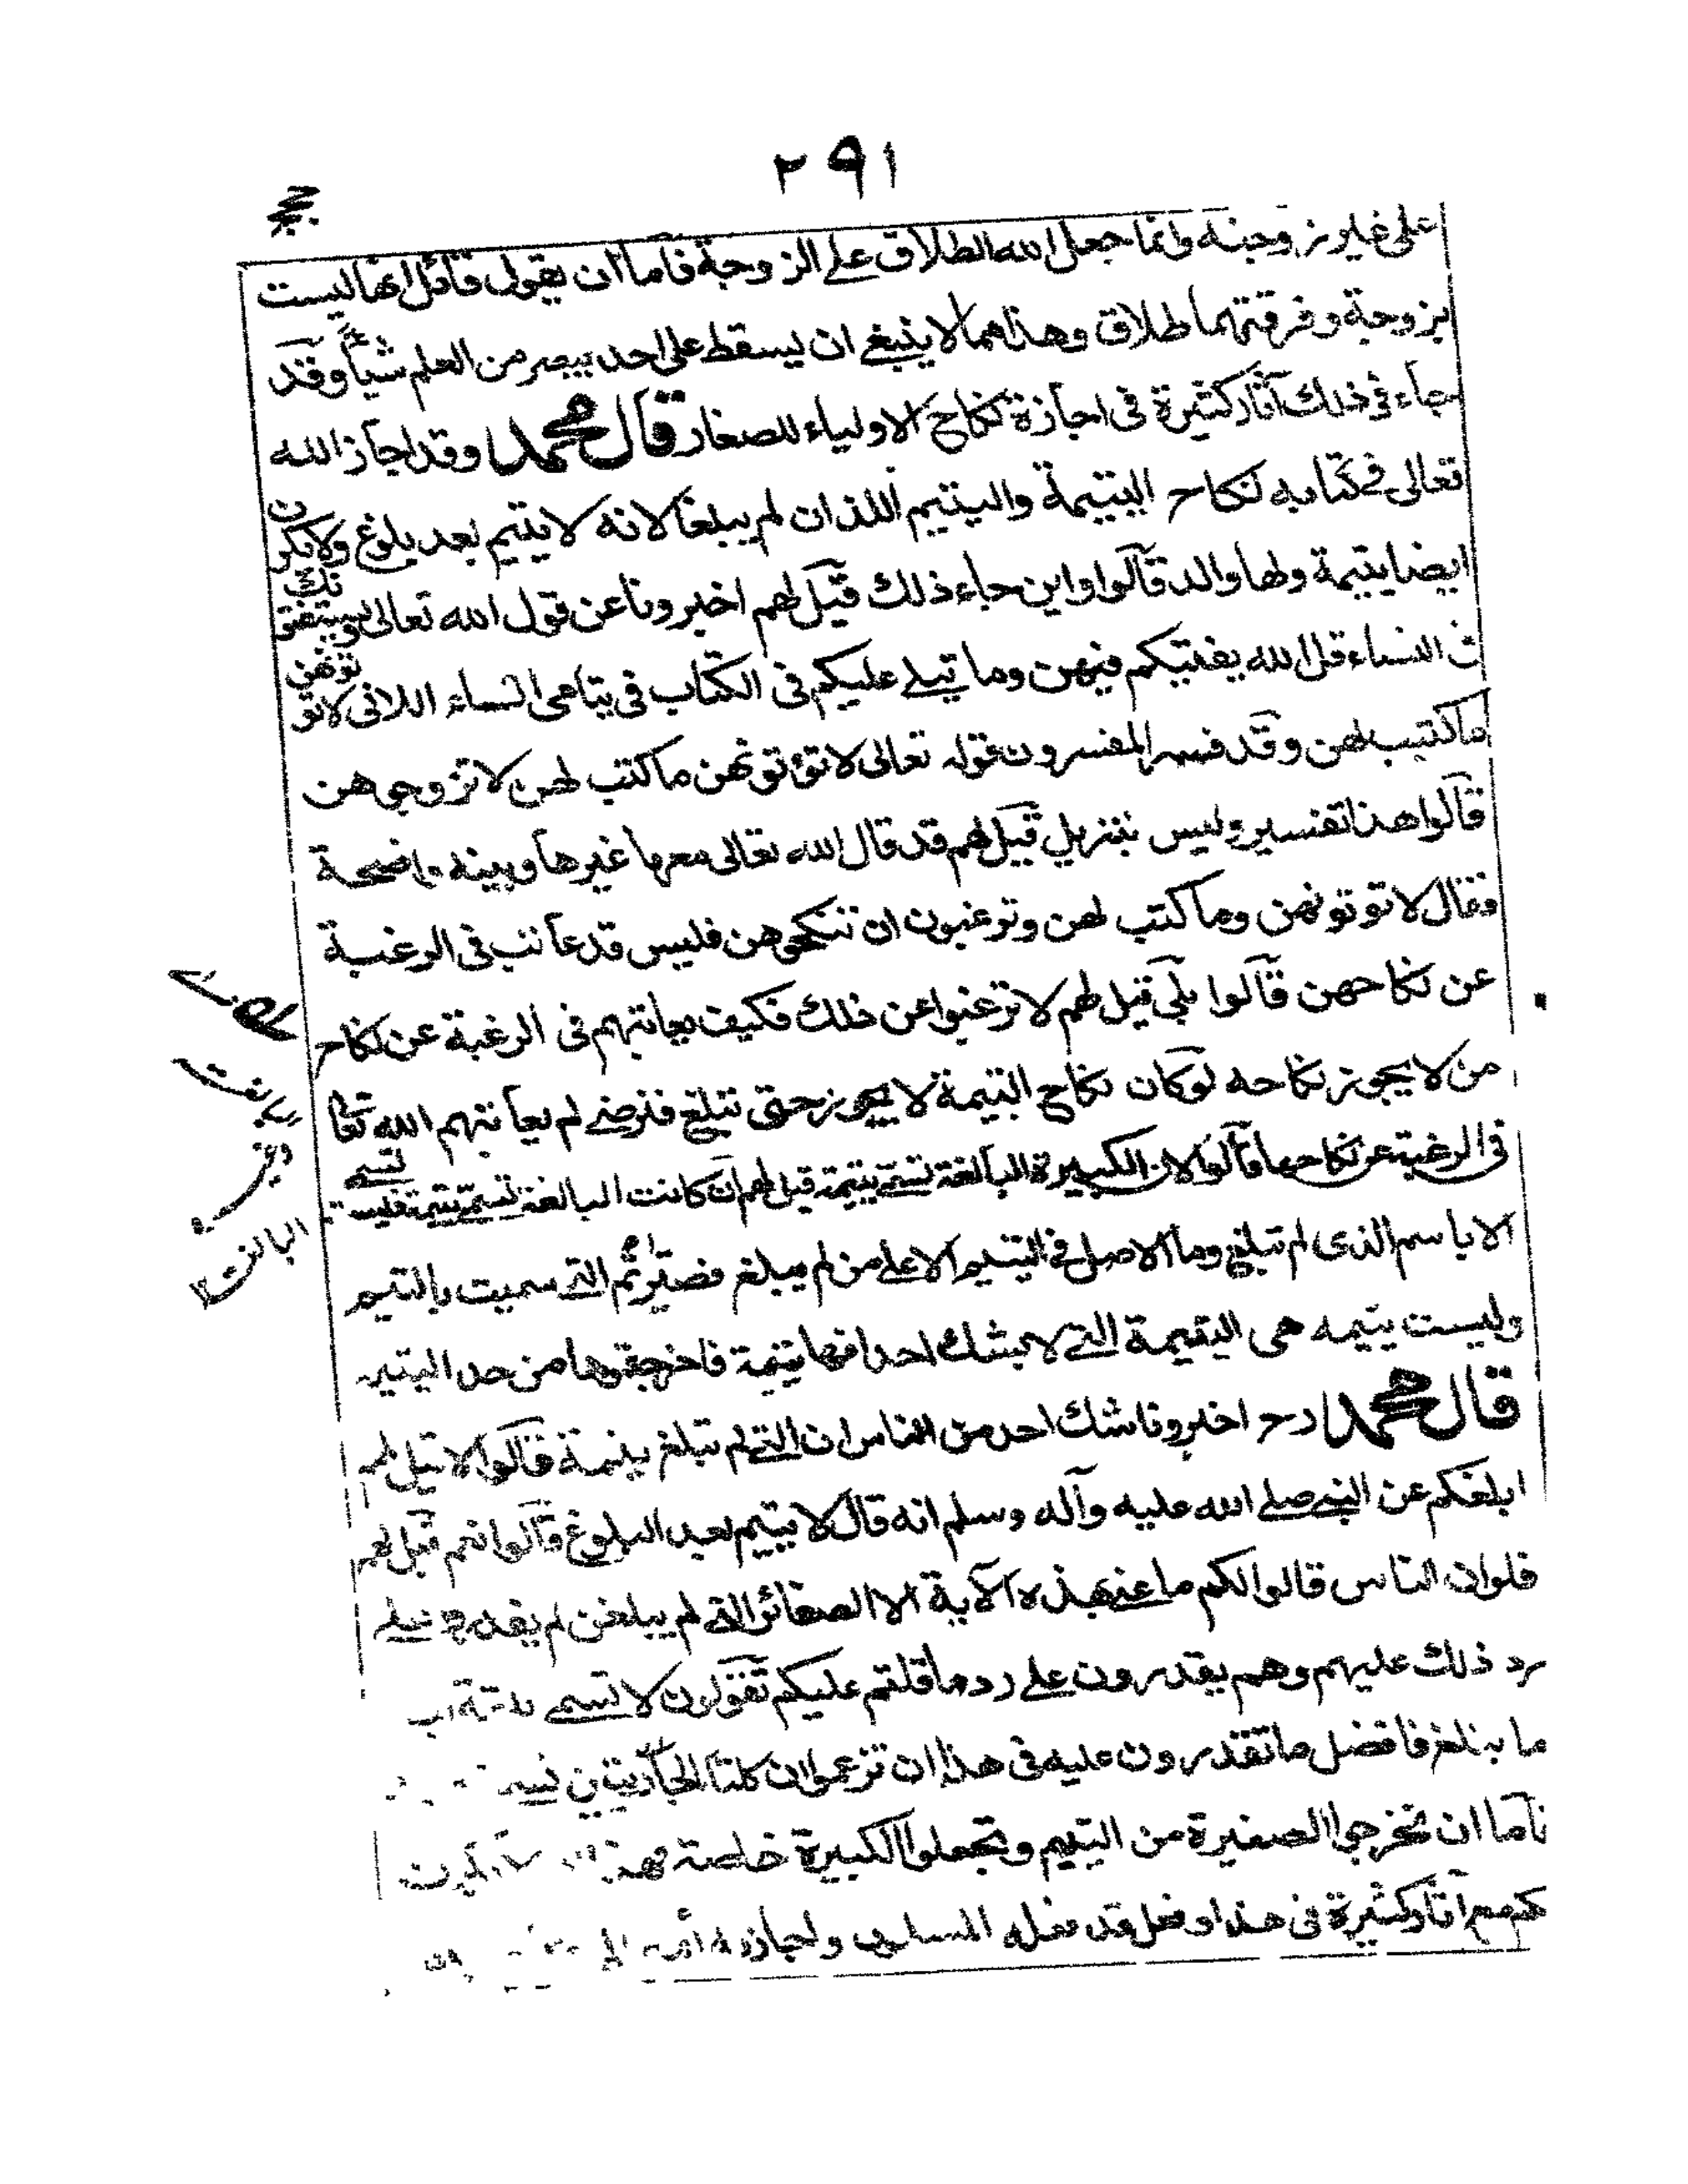 ٢٩١
على غير زوجته وانما جعل الله الطلاق على الزوجة فاما ان يقول قائل انها ليست
بزوجة وفرقتهما طلاق وهذا مما لا ينبغي ان يسقط على احد يبصر من العلم شيأ وقد
جاء في ذلك آثار كثيرة في اجازة نكاح الاولياء للصغار قال محمد وقد اجاز الله
تعالى في كتابه نكاح اليتيمة واليتيم اللذان لم يبلغا لانه لا يتيم بعد بلوغ ولا يكون
ايضا يتيمة ولها والد قالوا واين جاء ذلك قيل لهم اخبرونا عن قول الله تعالى ويستفتونك
في النساء قل الله يفتيكم فيهن وما يتلى عليكم في الكتاب في يتامى النساء اللاتى لا تؤتونهن
ما كتب لهن وقد فسر المفسرون قوله تعالى لا تؤتونهن ما كتب لهن لا تزوجوهن
قالوا هذا تفسير وليس بتنزيل قيل لهم قد قال الله تعالى معها غيرها وبينه واضحة
فقال لا تؤتونهن وما كتب لهن وترغبون ان تنكحوهن فليس قد عاتب في الرغبة
عن نكاحهن قالوا بلى قيل لهم لا ترغبوا عن ذلك فكيف يعاتبهم في الرغبة عن نكاح
من لا يجوز نكاحه لو كان نكاح اليتيمة لا يجوز حتى تبلغ فترضى لم يعاتبهم الله تعا
في الرغبة عن نكاحها قالوا لان الكبيرة البالغة تسمى يتيمة قيل لهم ان كانت البالغة تسمى يتيمة فليست تسمى
الا باسم الذى لم تبلغ وما الاصل في اليتيم الا على من لم يبلغ فصيرتم التي سميت باليتيم
وليست يتيمه هى اليتيمة التي لا يشك احد انها يتيمة فاخرجتموها من حد اليتيم
قال محمد رح اخبرونا شك احد من الناس ان التي لم تبلغ يتيمة قالوا لا قيل لهم
ابلغكم عن النبي صلى الله عليه وآله وسلم انه قال لا يتيم بعد البلوغ قالوا نعم قيل لهم
فلو ان الناس قالوا لكم ما عنى بهذه الآية الا الصغائر التي لم يبلغن لم يقدروا على
رد ذلك عليهم وهم يقدرون على رد ما قلتم عليكم تقولون لا تسمى
ما بلغ فافضل ما تقدرون عليه في هذا ان تزعموا ان كلتا الجاريتين
فاما ان تخرجوا الصغيرة من اليتيم وتجعلوا الكبيرة خاصة
كم مع آثار كثيرة في هذا وفعل قد فعله المسلمون واجازه
البالغة